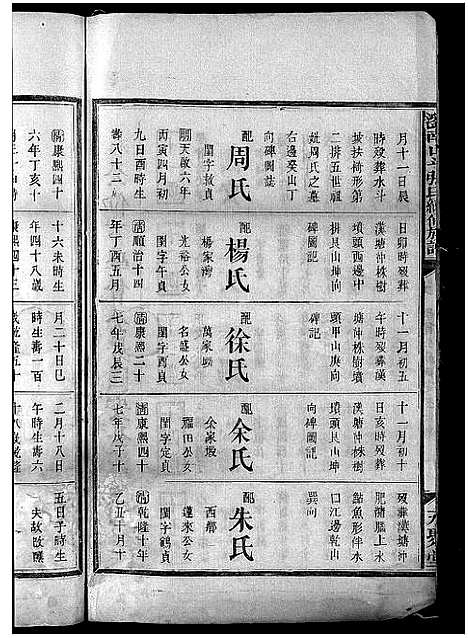 月十一日辰
時歿葬水斗
坡扶椅形第
二排五世祖
妣周氏之墓
右邊癸山丁
向碑圖誌
配周氏
閨字毓貞
明天啟六年
九日酉時生
壽八十三
日卯時歿葬
漢塘沖株樹
墳頭西邊中
排艮山坤向
碑記
配楊氏
楊家灣
光裕公女
閨字午貞
清順治十四
年丁酉五月
十一月初五
午時歿葬漢
塘沖株樹墳
頭甲山庚向
碑記
配徐氏
萬家
名盛公女
閨字酉貞
清康熙二十
七年戊辰三
十一月初十
日亥時歿葬
漢塘沖株樹
墳頭艮山坤
向碑圖記
配余氏
余家塅
福田公女
閨字定貞
清康熙四十
七年戊子十
歿葬漢塘沖
肥蒲腦上水
鮎魚形伴水
口江邊乾山
巽向
配朱氏
西鄉
蓬來公女
閨字鶴貞
清乾隆十年
乙丑十月十
清康熙四十
六年丁亥十
十六未時生
年四十八歲
月二十日巳
時生壽一百
二月十八日
午時生壽六
五日子時生
失故改醮